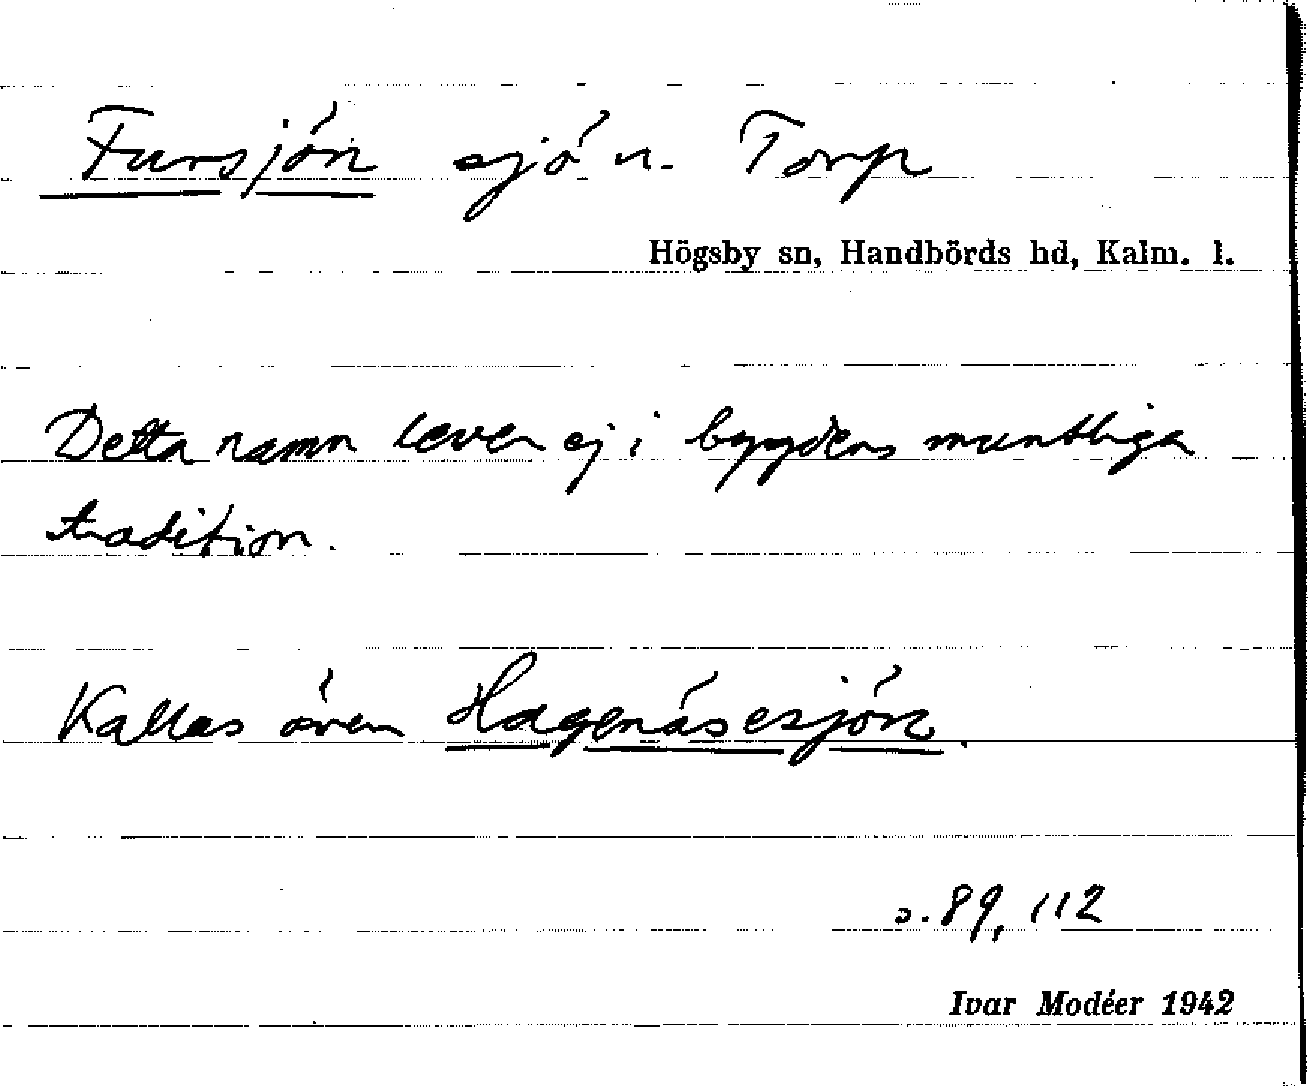 Fursjön sjö u. Torp
Högsby sn, Handbörds hd, Kalm. l.
Detta namn lever ej i bygdens muntliga
tradition.
Kallas även Hagenäsesjön.
s. 89, 112
Ivar Modéer 1942